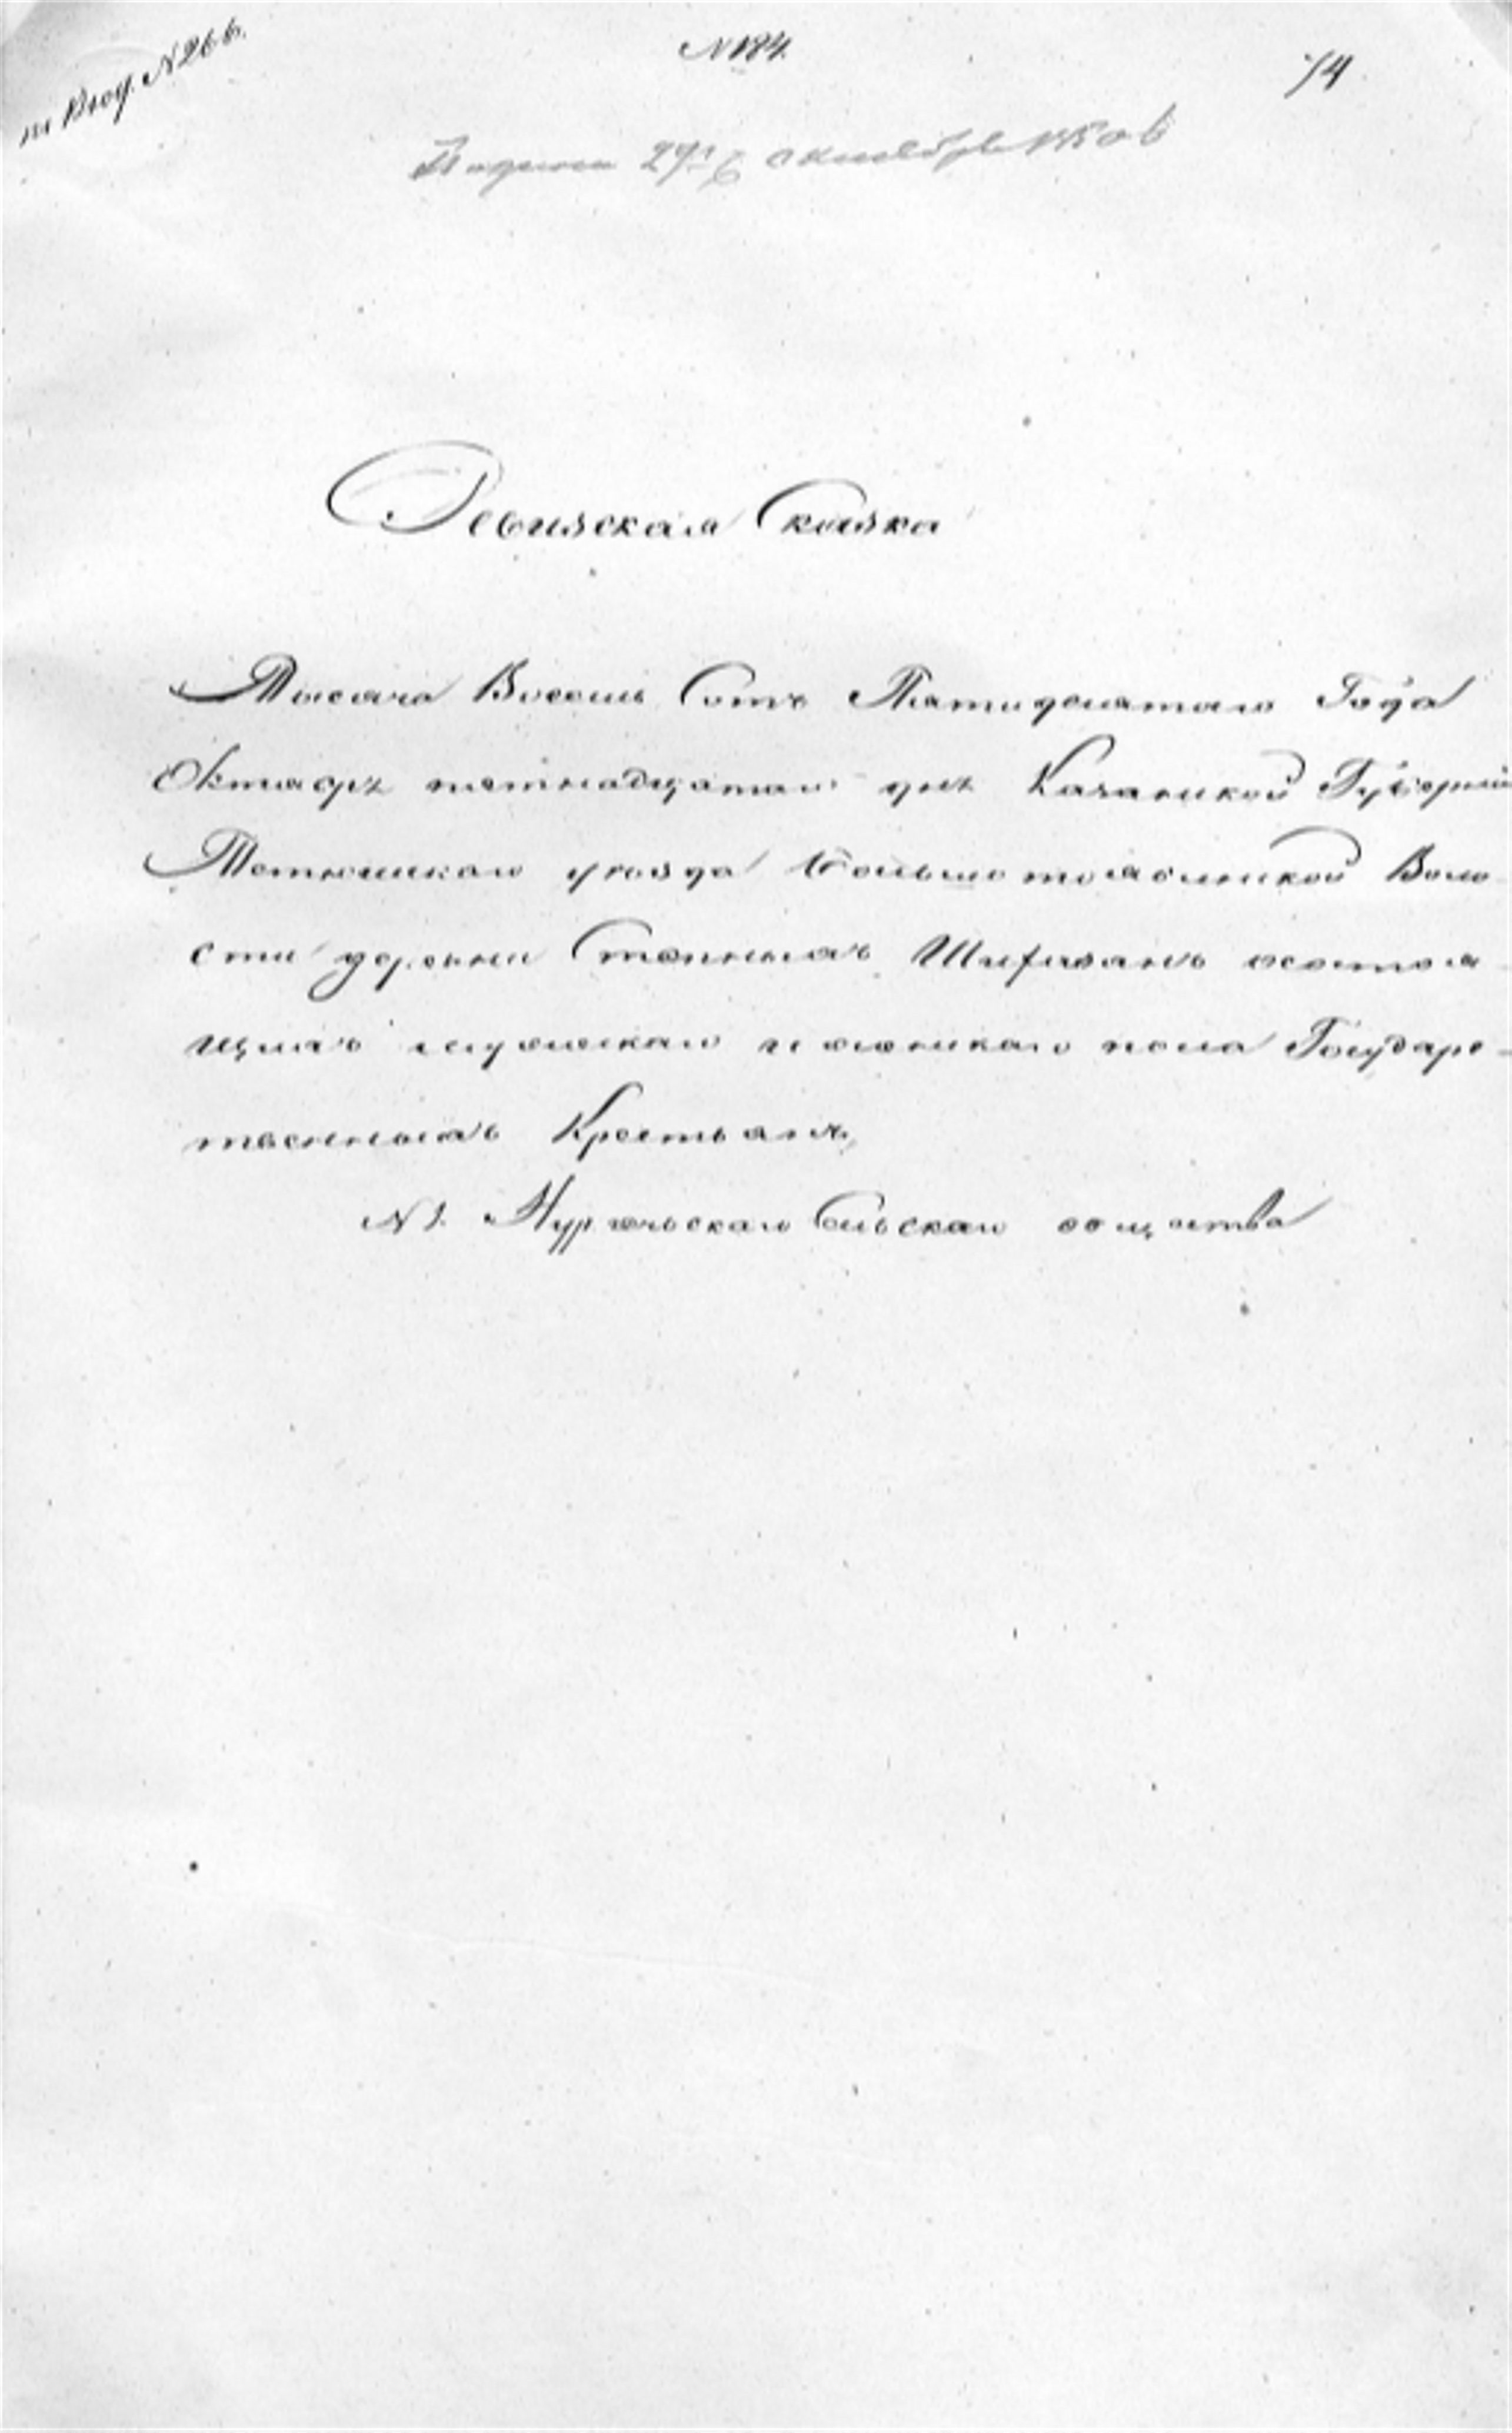 по Вход. N 266.
N 184.
74
Подана 29го октября 1850
Ревизская Сказка
Тысяча Восемь Сотъ Пятидесятаго Года
Октября пятнадцатаго дня Казанской Губернiи
Тетюшскаго уѣзда Больше Воло-
сти деревни Степныхъ Шифазанъ состоя-
щихъ мужескаго и женскаго пола Государс-
твенныхъ Крестьянъ,
N 1. Сельскаго общества